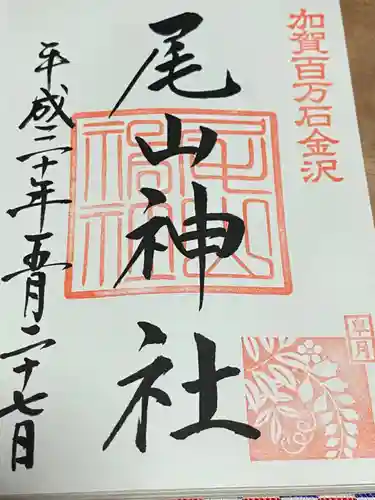 加賀百万石金沢
皐月
尾山神社
平成三十年五月二十七日